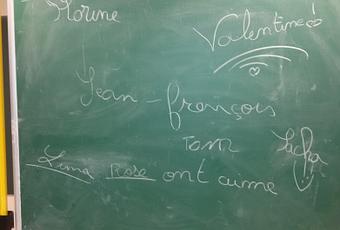 Florine
Valentine
Jean-françois
Tom
Sacha
Lima Rose ont aimé